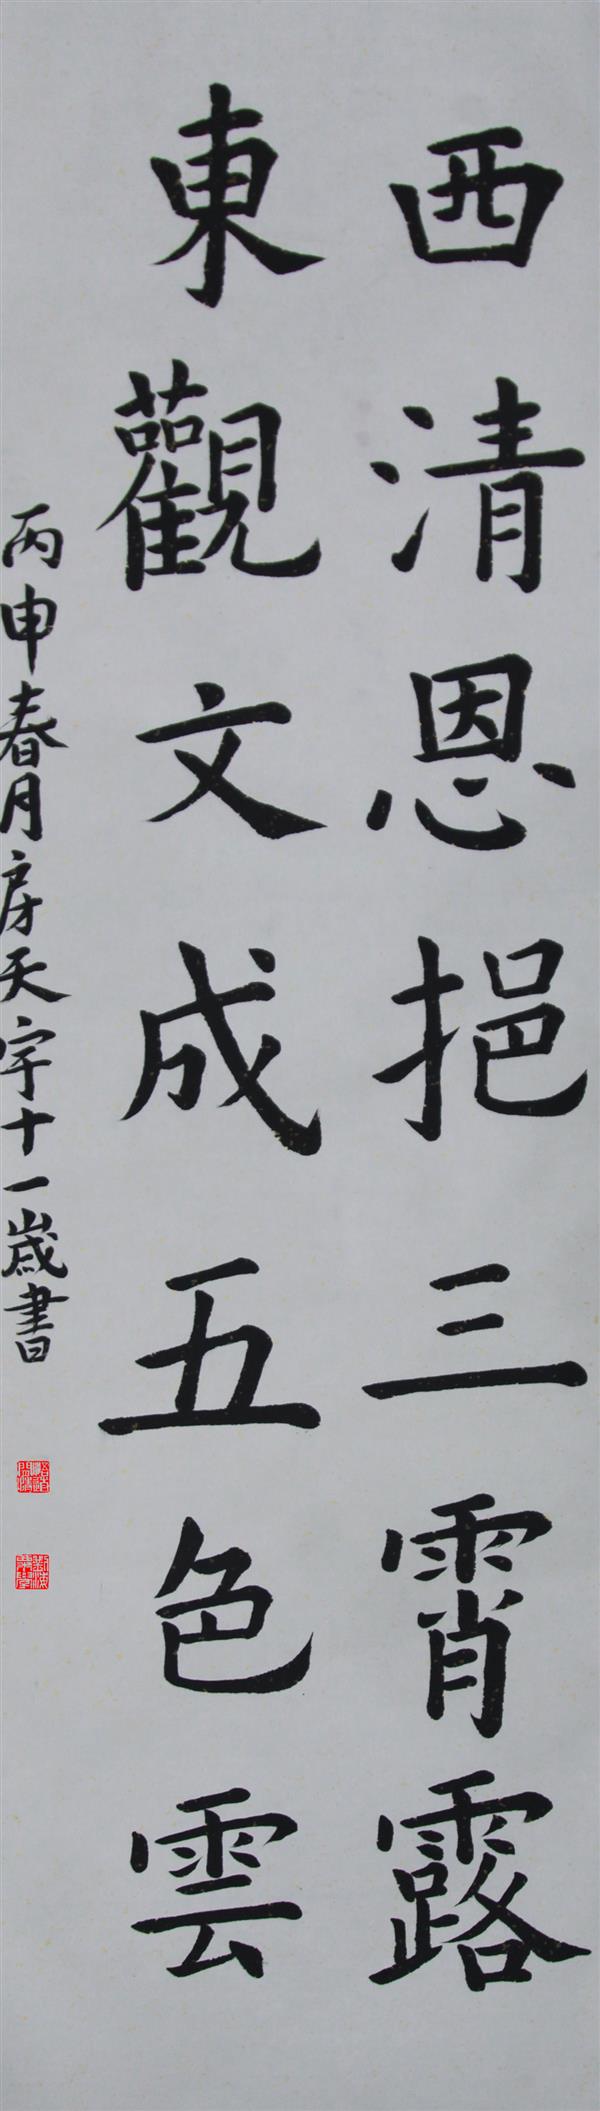 西清恩挹三霄露
東觀文成五色雲
丙申春月房天宇十一歲書